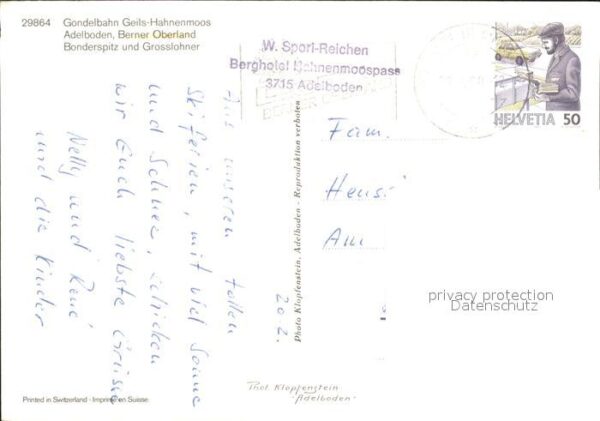 29864 Gondelbahn Geils-Hahnenmoos
Adelboden, Berner Oberland
Bonderspitz und Grosslohner
W. Sporl-Reichen
Berghotel Hahnenmoospass
3715 Adelboden
HELVETIA 50
Aus unseren tollen
Skiferien, mit viel Sonne
und Schnee, schicken
wir Euch liebste Grüsse
Nelly und René
und die Kinder
202.
Photo Klopfenstein, Adelboden - Reproduktion verboten
Fam.
Am
privacy protection
Datenschutz
Phot. Klopfenstein
"Adelboden"
Printed in Switzerland - Imprimé en Suisse